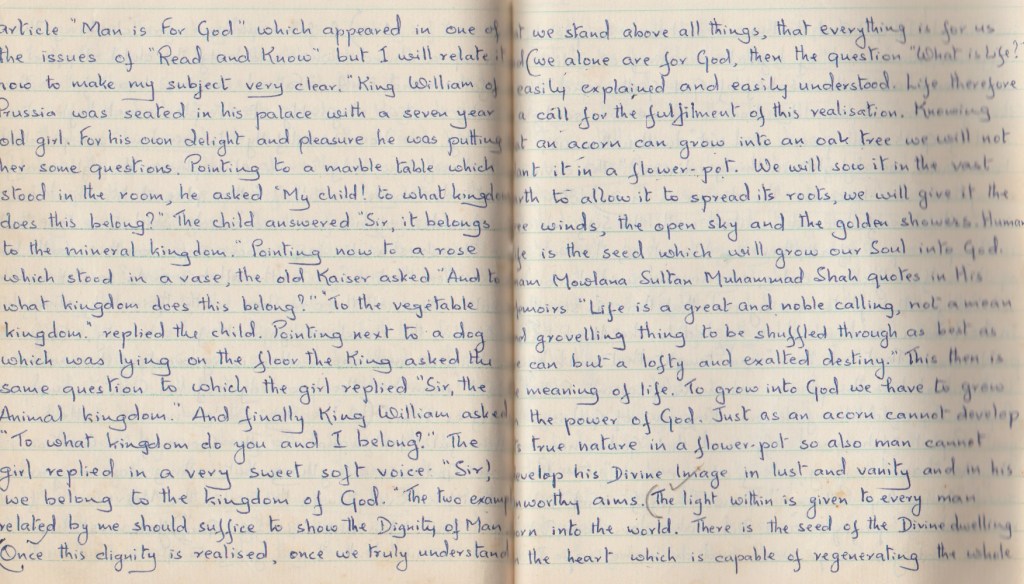 article "Man is For God" which appeared in one of
the issues of "Read and Know" but I will relate it
now to make my subject very clear. "King William of
Prussia was seated in his palace with a seven year
old girl. For his own delight and pleasure he was putting
her some questions. Pointing to a marble table which
stood in the room, he asked "My child! to what kingdom
does this belong?" The child answered "Sir, it belongs
to the mineral kingdom." Pointing now to a rose
which stood in a vase, the old Kaiser asked "And to
what kingdom does this belong?" "To the vegetable
kingdom." replied the child. Pointing next to a dog
which was lying on the floor the King asked the
same question to which the girl replied "Sir, the
Animal kingdom." And finally King William asked
"To what kingdom do you and I belong?" The
girl replied in a very sweet soft voice: "Sir!
we belong to the kingdom of God." The two examp
related by me should suffice to show the Dignity of Man
Once this dignity is realised, once we truly understand
t we stand above all things, that everything is for us
d (we alone are for God, then the question "What is Life?"
easily explained and easily understood. Life therefore
a call for the fulfilment of this realisation. Knowing
t an acorn can grow into an oak tree we will not
nt it in a flower-pot. We will sow it in the vast
rth to allow it to spread its roots, we will give it the
ee winds, the open sky and the golden showers. Human
fe is the seed which will grow our Soul into God.
am Mowlana Sultan Muhammad Shah quotes in His
moirs "Life is a great and noble calling, not a mean
d grovelling thing to be shuffled through as best as
e can but a lofty and exalted destiny." This then is
e meaning of life. To grow into God we have to grow
the power of God. Just as an acorn cannot develop
s true nature in a flower-pot so also man cannot
velop his Divine Image in lust and vanity and in his
nworthy aims. (The light within is given to every man
orn into the world. There is the seed of the Divine dwelling
the heart which is capable of regenerating the whole